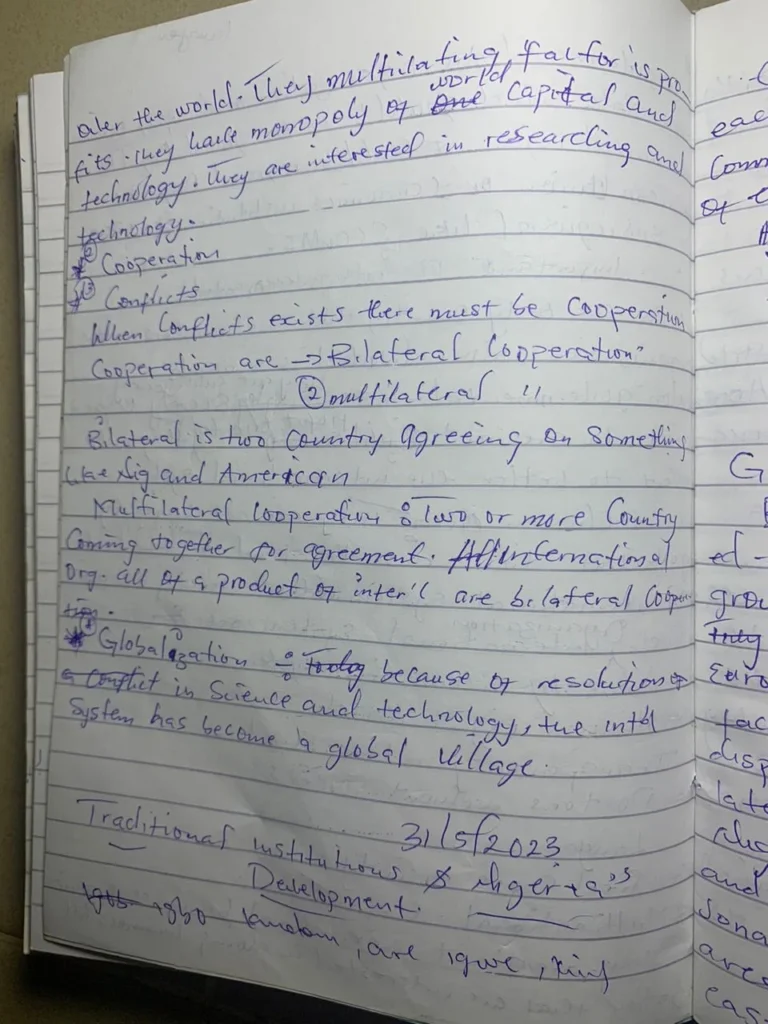 over the world. They multilating factor is pro
fits. They have monopoly of one world capital and
technology. They are interested in researching and
technology.
② Cooperation
③ Conflicts
When Conflicts exists there must be Cooperation
Cooperation are → Bilateral Cooperation
② multilateral "
Bilateral is two Country agreeing on Something
like Nig and American
Multilateral Cooperation : Two or more Country
Coming together for agreement. All International
Org. all of a product of inter'l are bilateral Coopera
tion.
Globalization : Today because of resolution of
a conflict in Science and technology, the int'l
System has become a global village.
31/5/2023
Traditional institutions & Nigeria's
Development.
Igbo Igbo are igwe,
eac
Comm
of
G
ed -
grou
Truly
Euro
fac
disp
late
and
Sona
area
cas